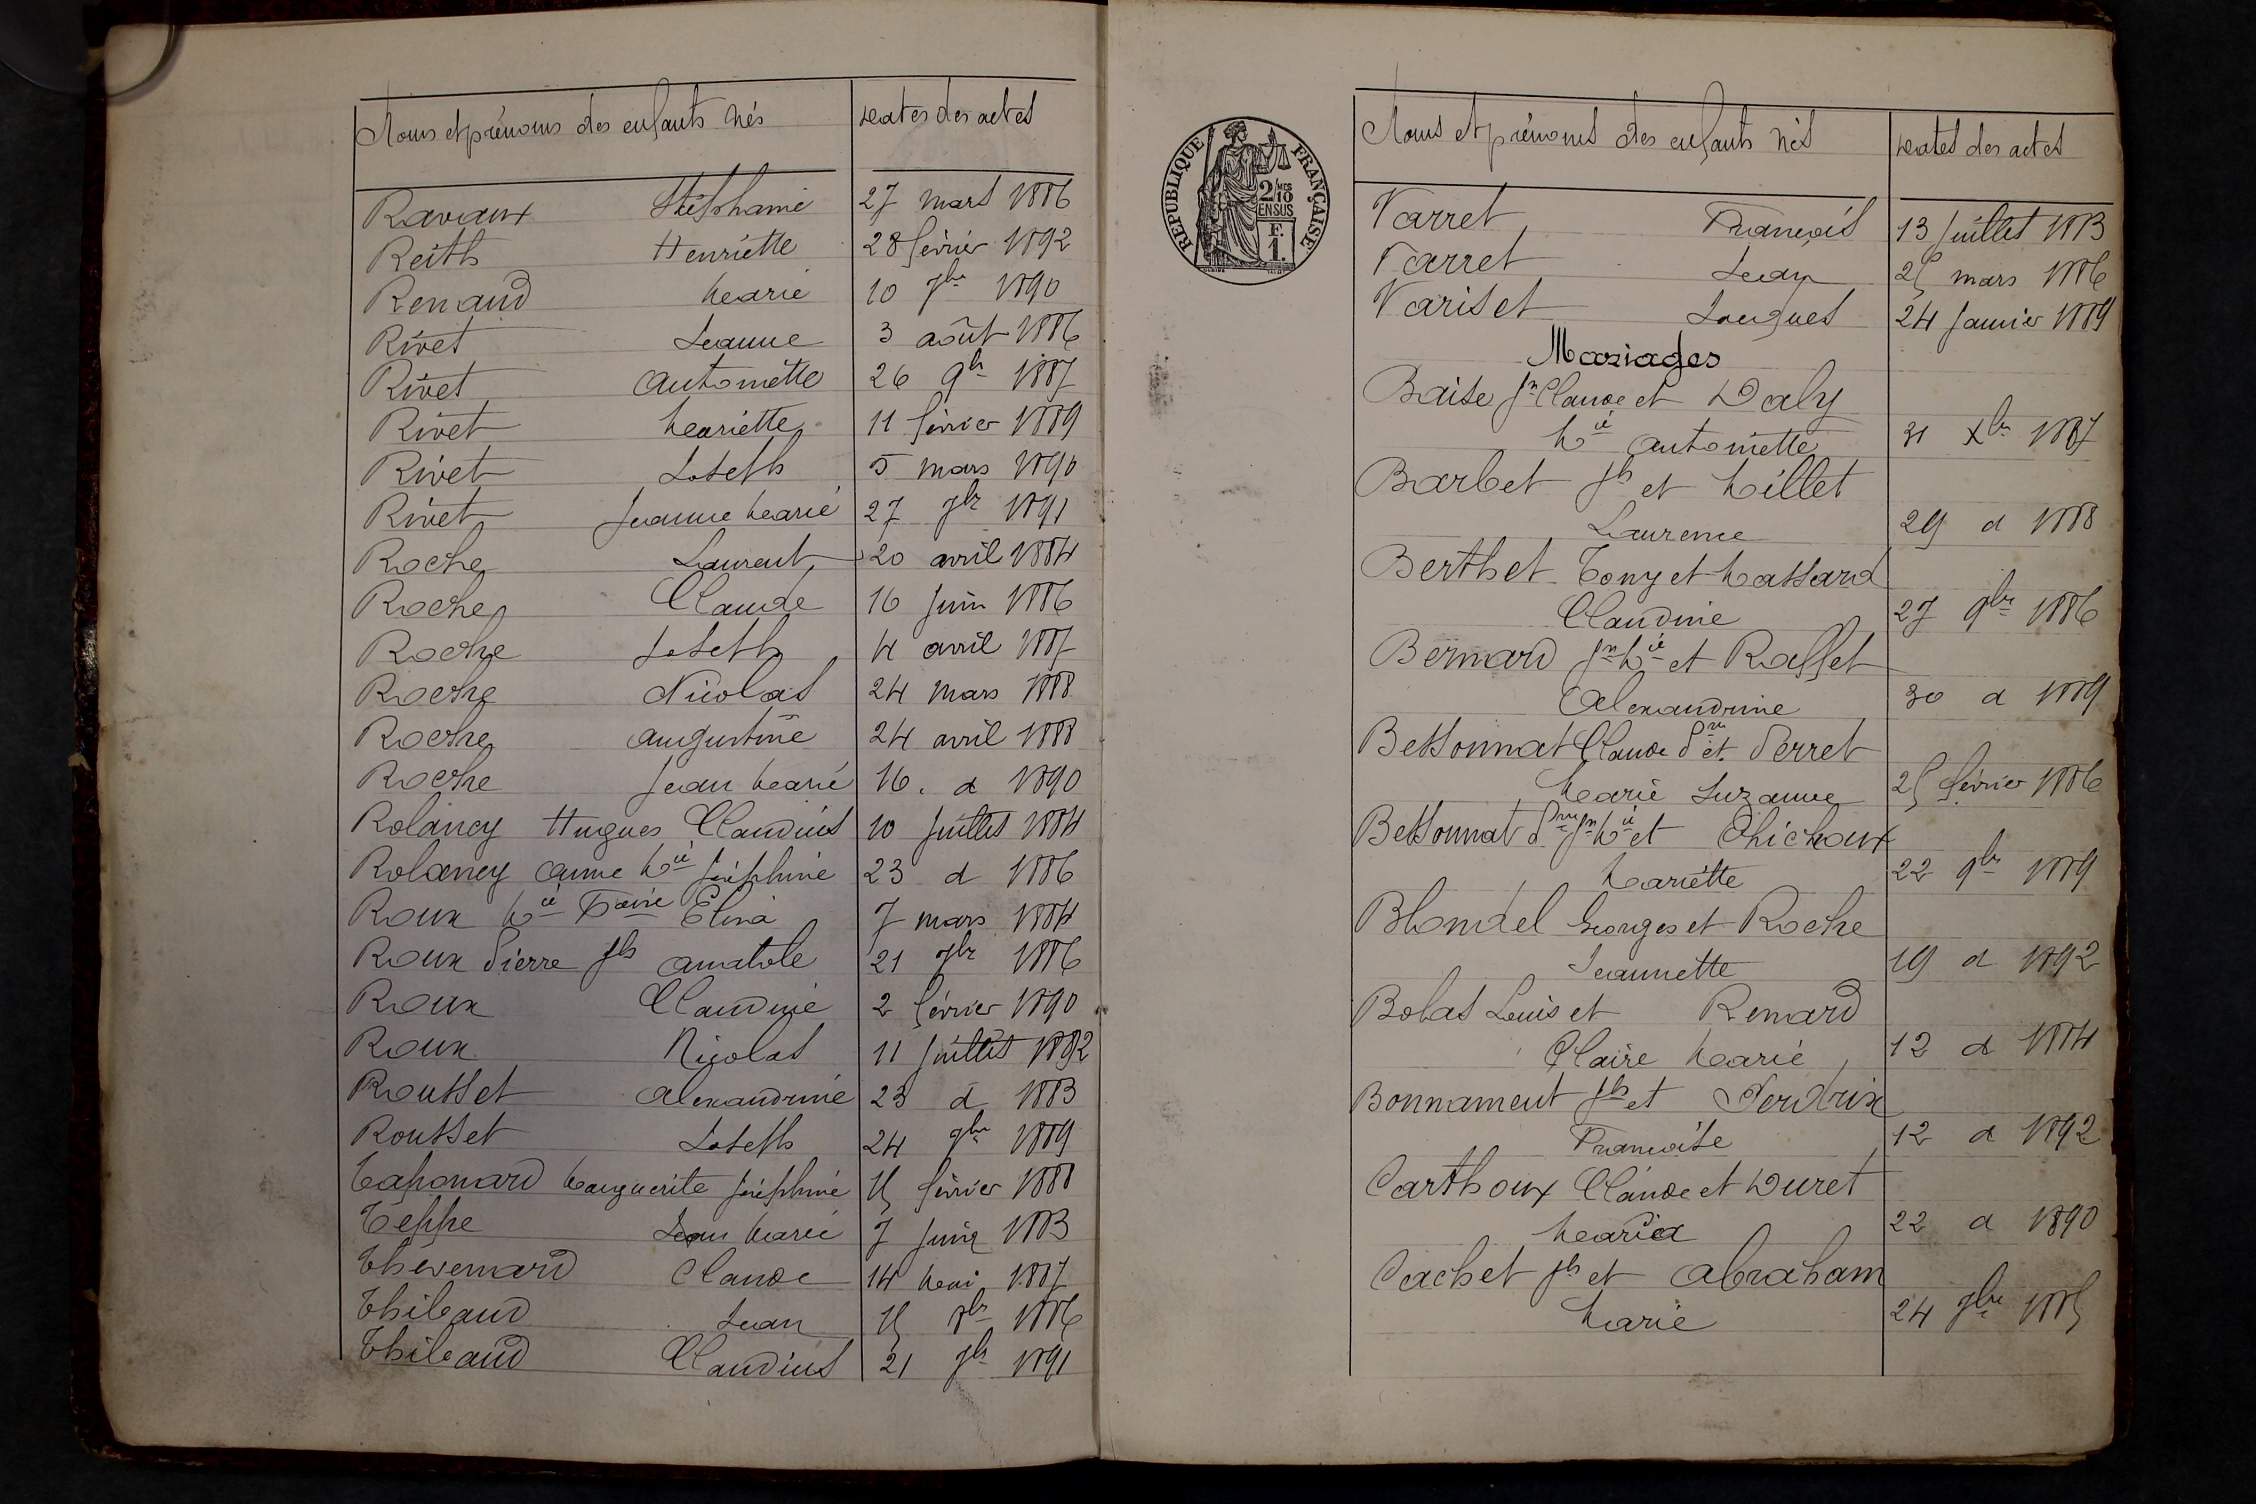 Noms et prénoms des enfants nés dates des actes
Ravaux Stéphanie 27 mars 1886
Reith Henriette 28 février 1892
Renaud Marie 10 7bre 1890
Rivet Jeanne 3 août 1886
Rivet Antoinette 26 9bre 1887
Rivet Mariette 11 février 1889
Rivet Joseph 5 mars 1890
Rivet Jeanne Marie 27 7bre 1891
Roche Laurent 20 avril 1884
Roche Claude 16 juin 1886
Roche Joseph 4 avril 1887
Roche Nicolas 24 mars 1888
Roche Augustine 24 avril 1888
Roche Jean Marie 16 d 1890
Rolancy Hugues Claudius 10 juillet 1884
Rolancy Anne Mie Joséphine 23 d 1886
Roux Mie Élina 7 mars 1884
Roux Pierre Jh Anatole 21 7bre 1886
Roux Claudine 2 février 1890
Roux Nicolas 11 juillet 1892
Rousset Alexandrine 23 d 1883
Rousset Joseph 24 1889
Taponard Marguerite Joséphine 15 février 1888
Teppe Jean Marie 7 juin 1883
Thévenard Claude 14 mai 1887
Thibaud Jean 15 8bre 1886
Thibaud Claudius 21 7bre 1891
RÉPUBLIQUE FRANÇAISE
2/10
MES
EN SUS
F.
1.
Noms et prénoms des enfants nés dates des actes
Varret François 13 juillet 1883
Varret Jean 25 mars 1886
Variset Jacques 24 janvier 1889
Mariages
Baise Jn Claude et Daly
Mie Antoinette 31 Xbre 1887
Barbet Jh et Millet
Laurence 29 d 1888
Berthet Tony et Massard
Claudine 27 9bre 1886
Bernard Jn Mie et Raffet
Alexandrine 30 d 1889
Bessonnat Claude Pre et Perret
Marie Suzanne 25 février 1886
Bessonnat Jn Mie et Chichoux
Mariette 22 9bre 1889
Blondel Georges et Roche
Jeannette 19 d 1892
Bolas Louis et Renard
Claire Marie 12 d 1884
Bonnament Jh et Perdrix
Françoise 12 d 1892
Carthoux Claude et Duret
Maria 22 d 1890
Cachet Jh et Abraham
Marie 24 7bre 1885